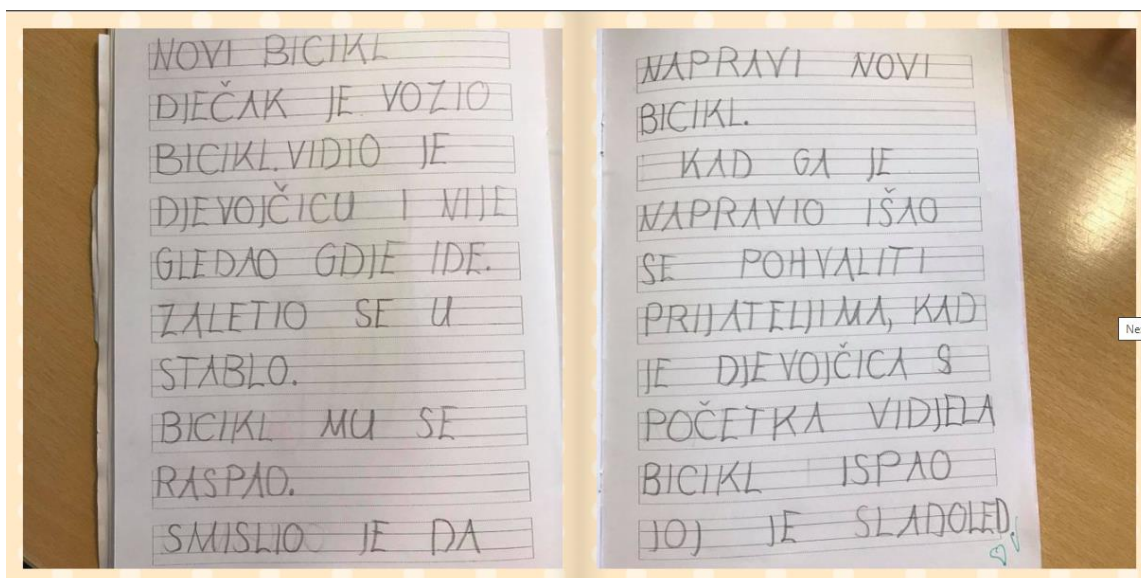 NOVI BICIKL
DJEČAK JE VOZIO
BICIKL. VIDIO JE
DJEVOJČICU I NIJE
GLEDAO GDJE IDE.
ZALETIO SE U
STABLO.
BICIKL MU SE
RASPAO.
SMISLIO JE DA
NAPRAVI NOVI
BICIKL.
KAD GA JE
NAPRAVIO IŠAO
SE POHVALITI
PRIJATELJIMA, KAD
JE DJEVOJČICA S
POČETKA VIDJELA
BICIKL ISPAO
JOJ JE SLADOLED.